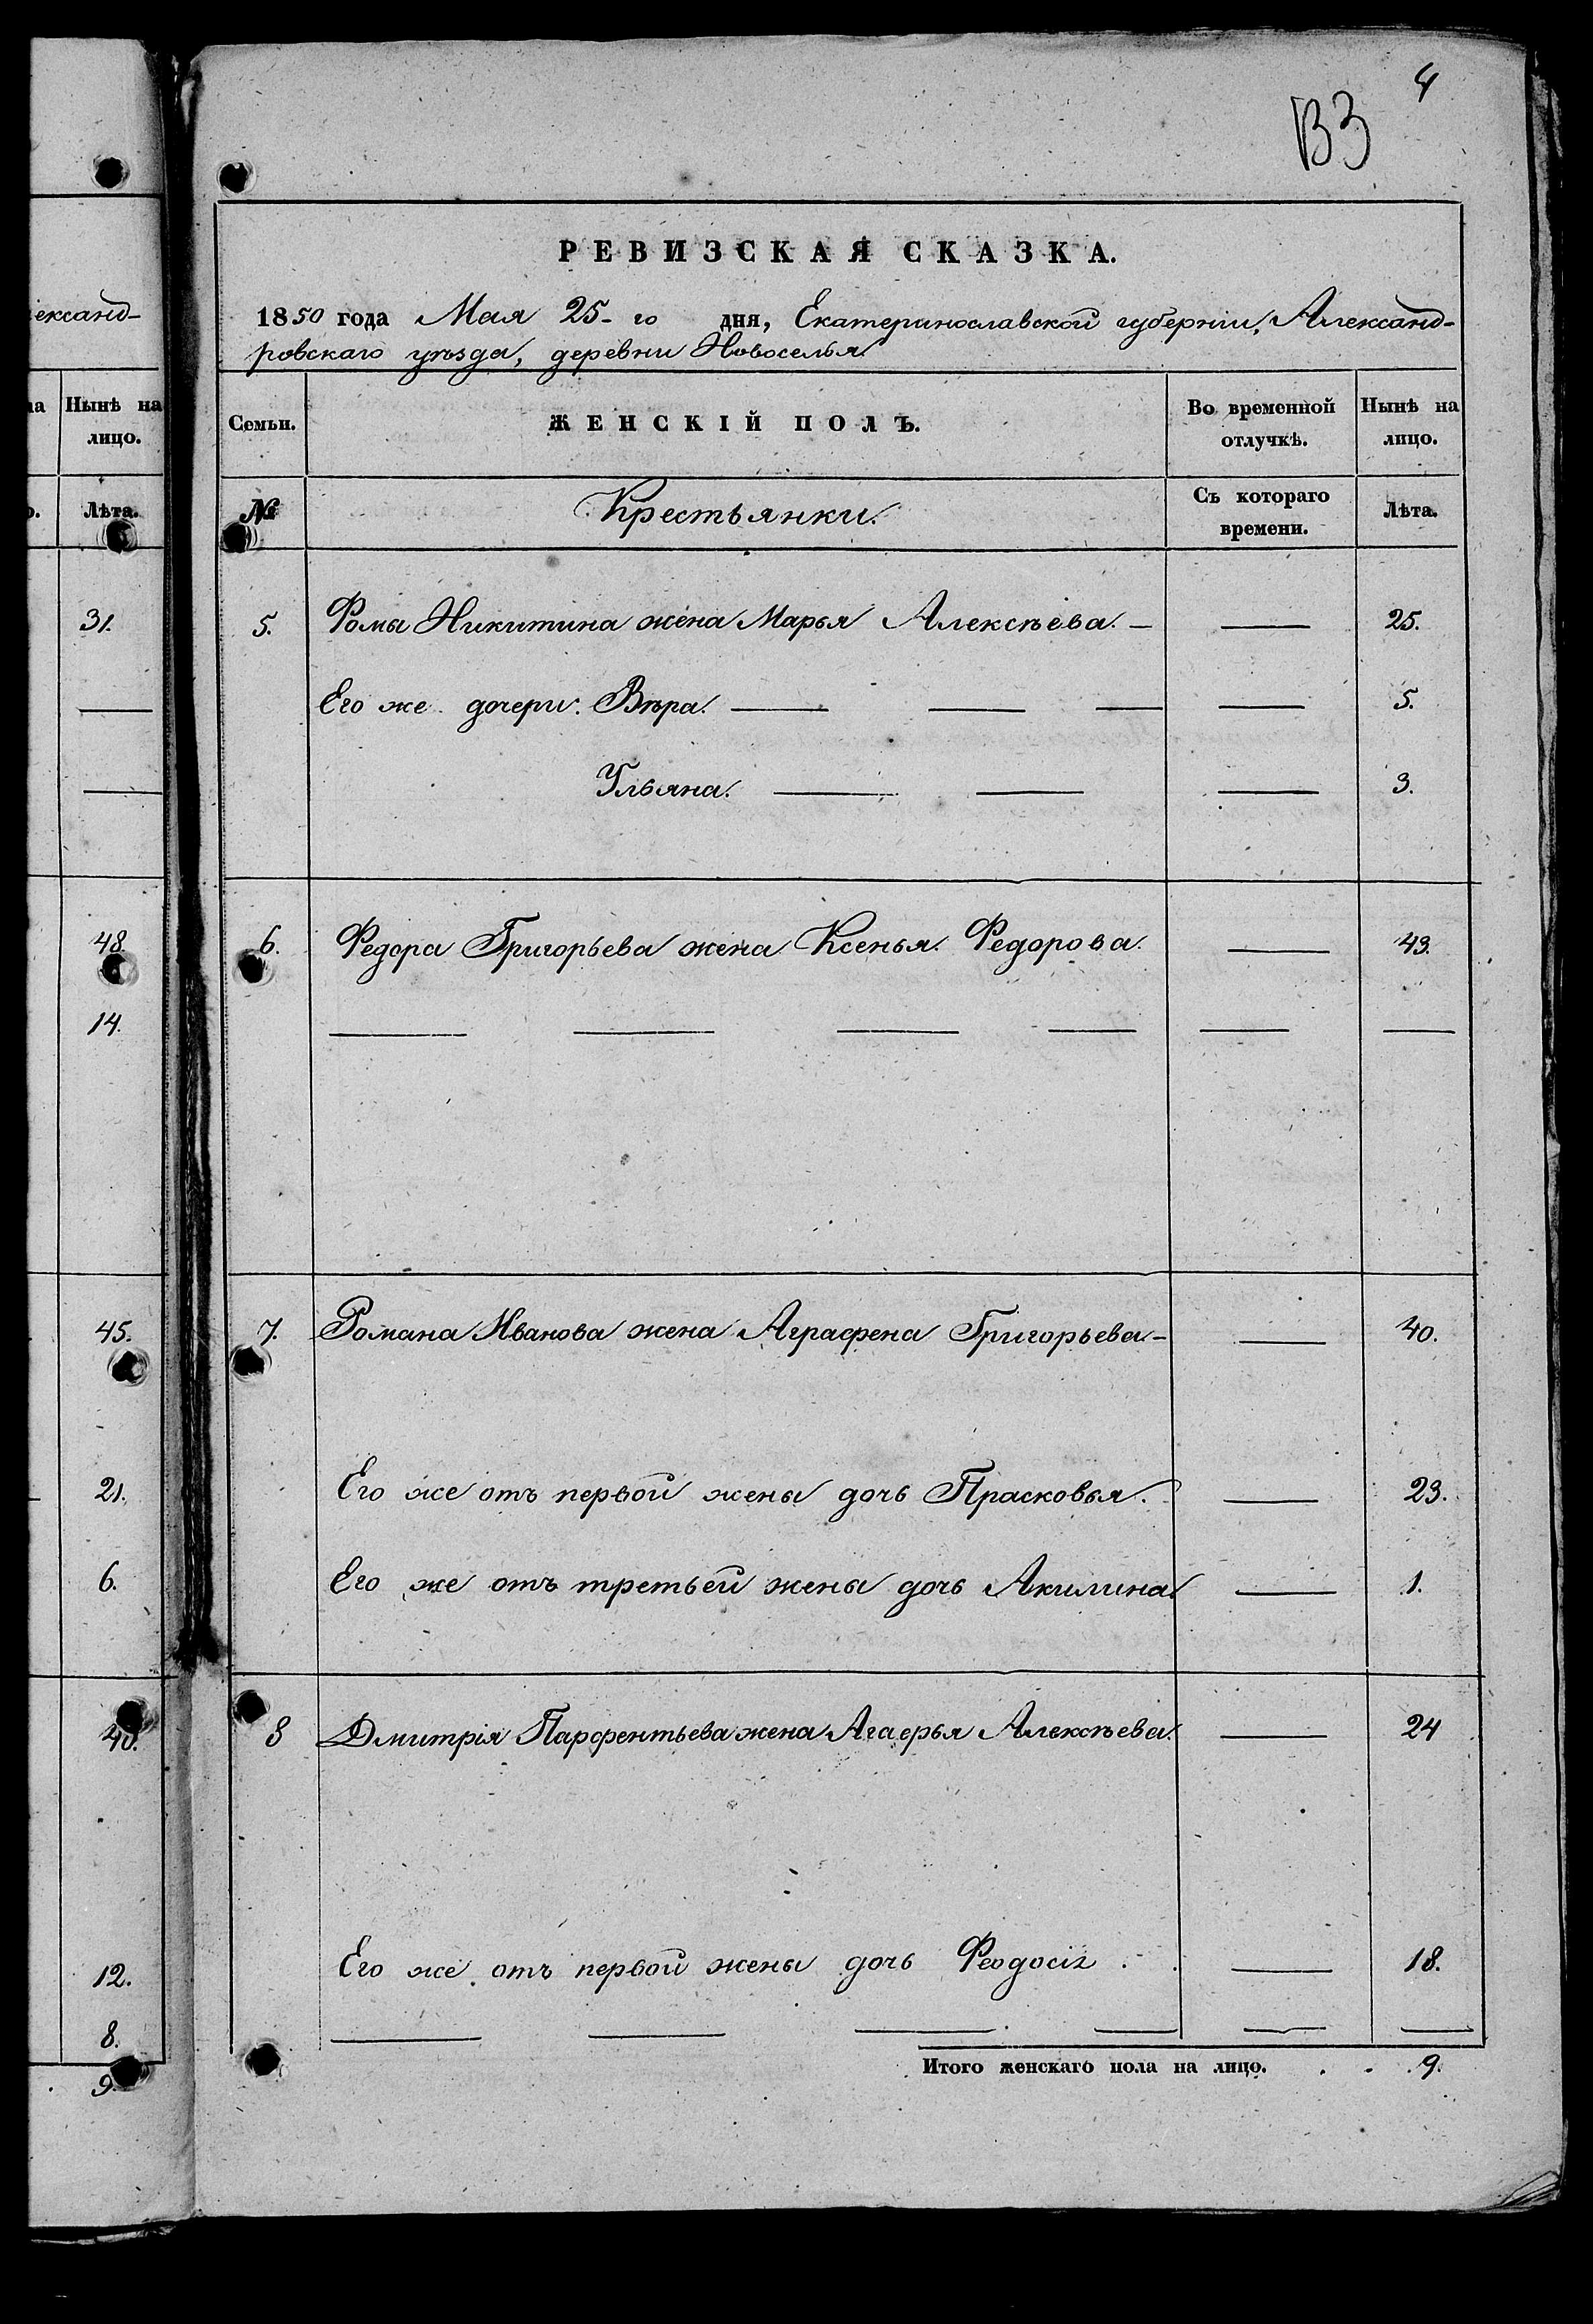 4
В3
РЕВИЗСКАЯ СКАЗКА.
1850 года Мая 25-го дня, Екатеринославской губерніи, Александ-
ровскаго уѣзда, деревни Новоселья.
Семьи. ЖЕНСКІЙ ПОЛЪ. Во временной отлучкѣ. Нынѣ на лицо.
№ Крестьянки. Съ котораго времени. Лѣта.
5. Фомы Никитина жена Марья Алексѣева. — — 25.
Его же дочери. Вѣра. — — — — 5.
Ульяна. — — — 3.
6. Федора Григорьева жена Ксенья Федорова. — 43.
— — — — — —
7. Романа Иванова жена Аграфена Григорьева — — 40.
Его же отъ первой жены дочь Прасковья. — 23.
Его же отъ третьей жены дочь Акилина — 1.
8 Дмитрія Парфентьева жена Агафья Алексѣева. — 24
Его же отъ первой жены дочь Феодосія . — 18.
— — — — — —
Итого женскаго пола на лицо. . . 9.
ександ-
Нынѣ на
лицо.
Лѣта.
31.
—
—
48.
14.
45.
21.
6.
40.
12.
8.
9.